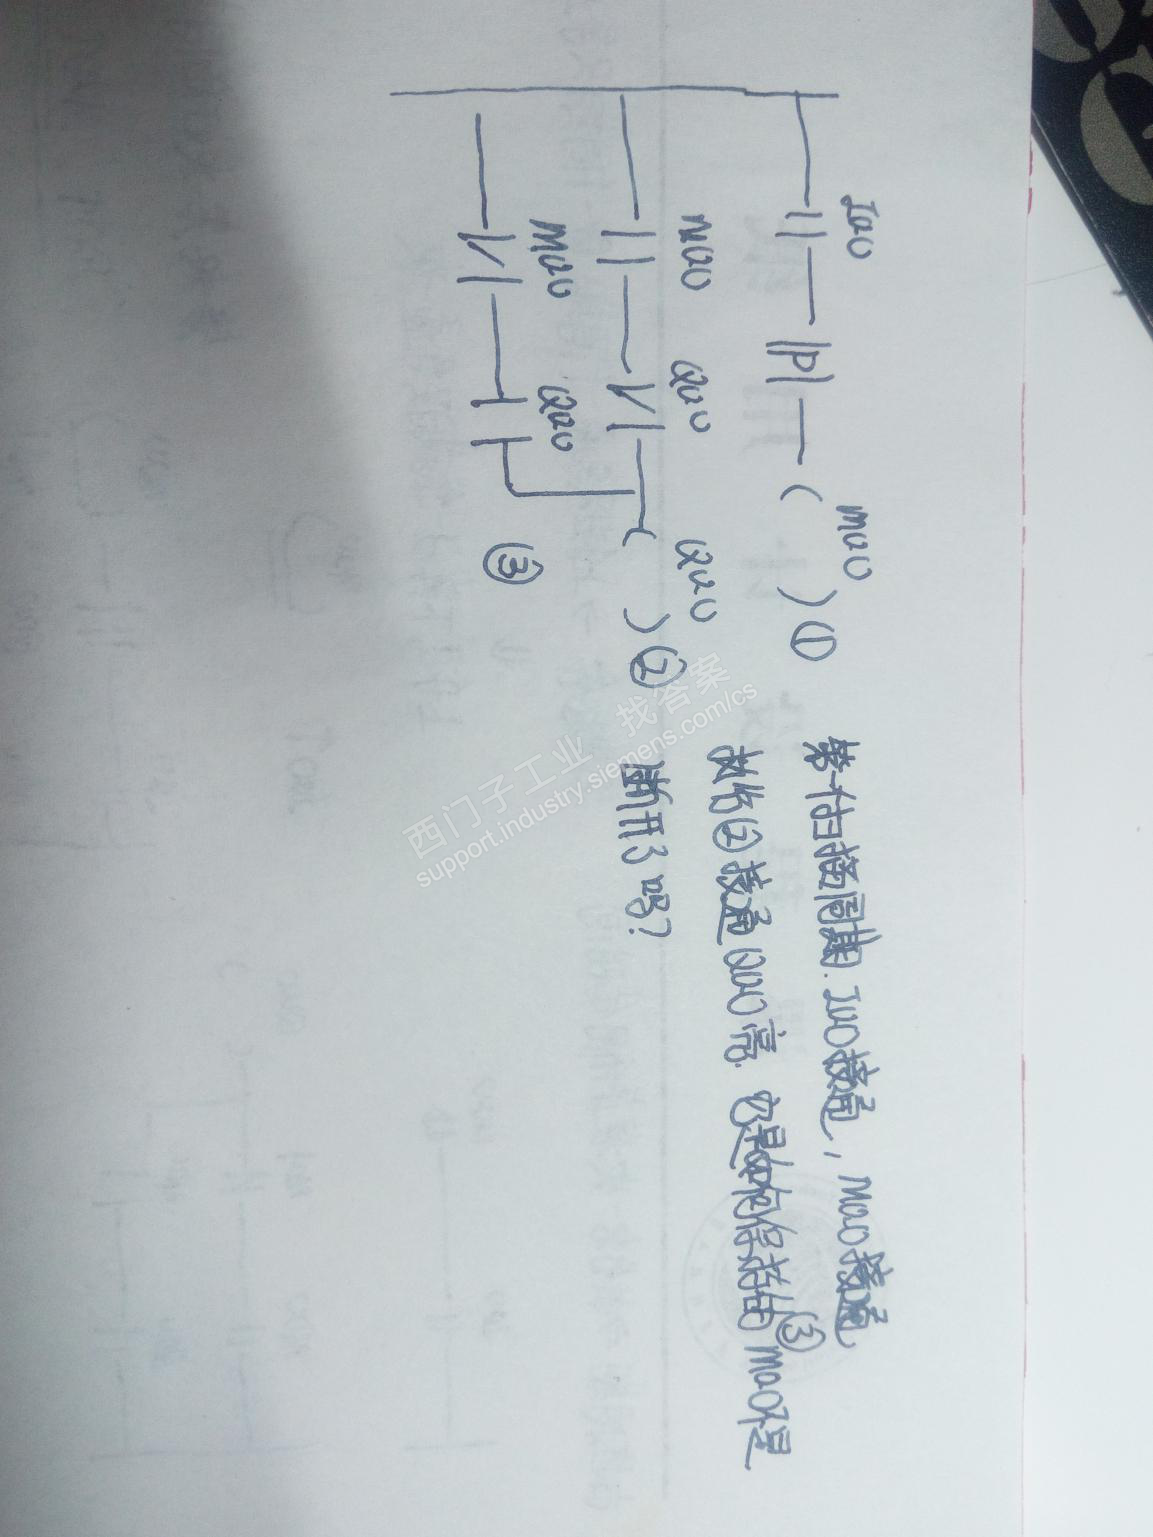 I0.0
M0.0
P
①
M0.0
Q0.0
Q0.0
②
M0.0
Q0.0
③
第一个扫描周期.I0.0接通，M0.0接通
故以②接通Q0.0亮. 它是如何保持的 M0.0不是
③
断开了吗？
西门子工业 找答案
support.industry.siemens.com/cs